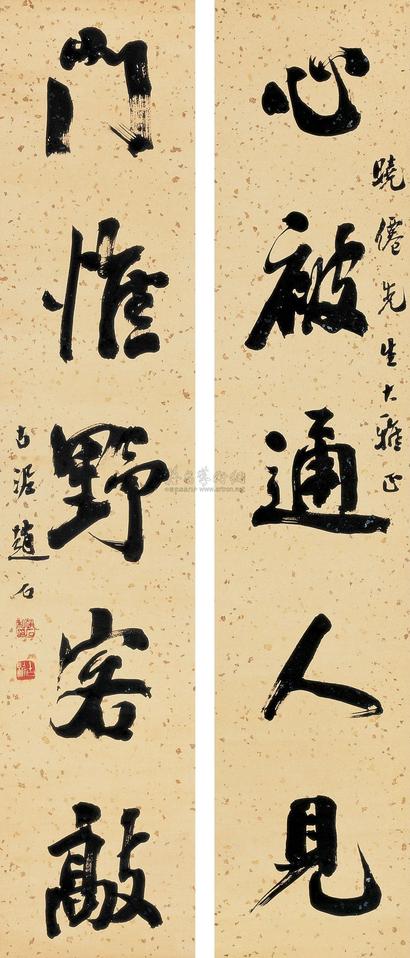 心被通人見
曉僊先生大雅正
門惟野客敲
古泥趙石